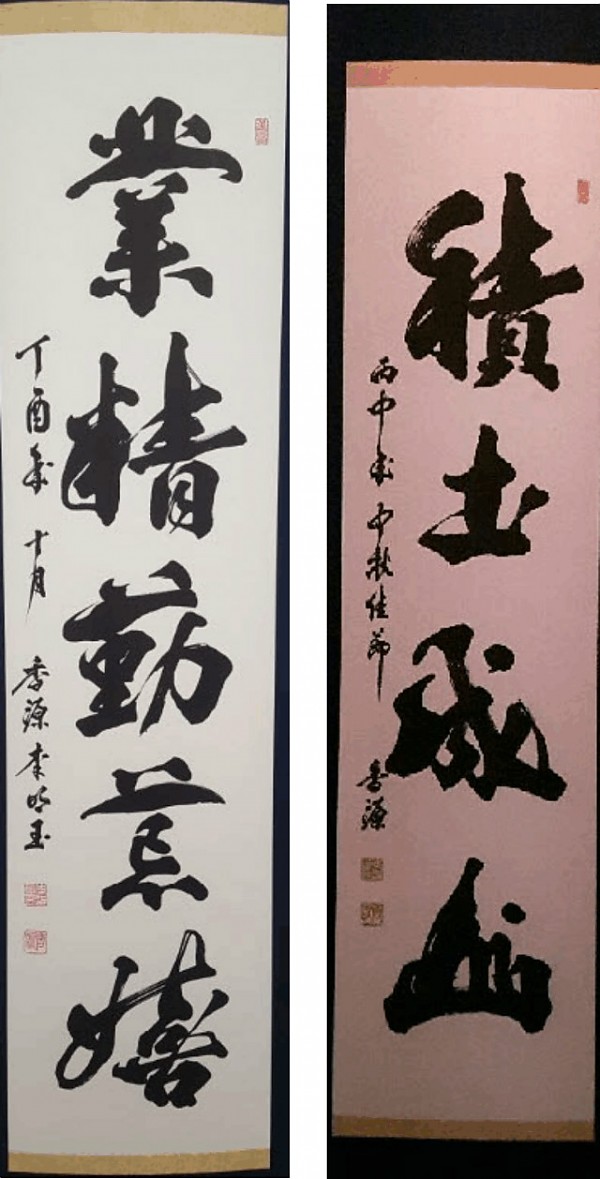 業精勤荒嬉
丁酉年 十月 香源 李明玉
積土成山
丙申年 中秋佳節 香源